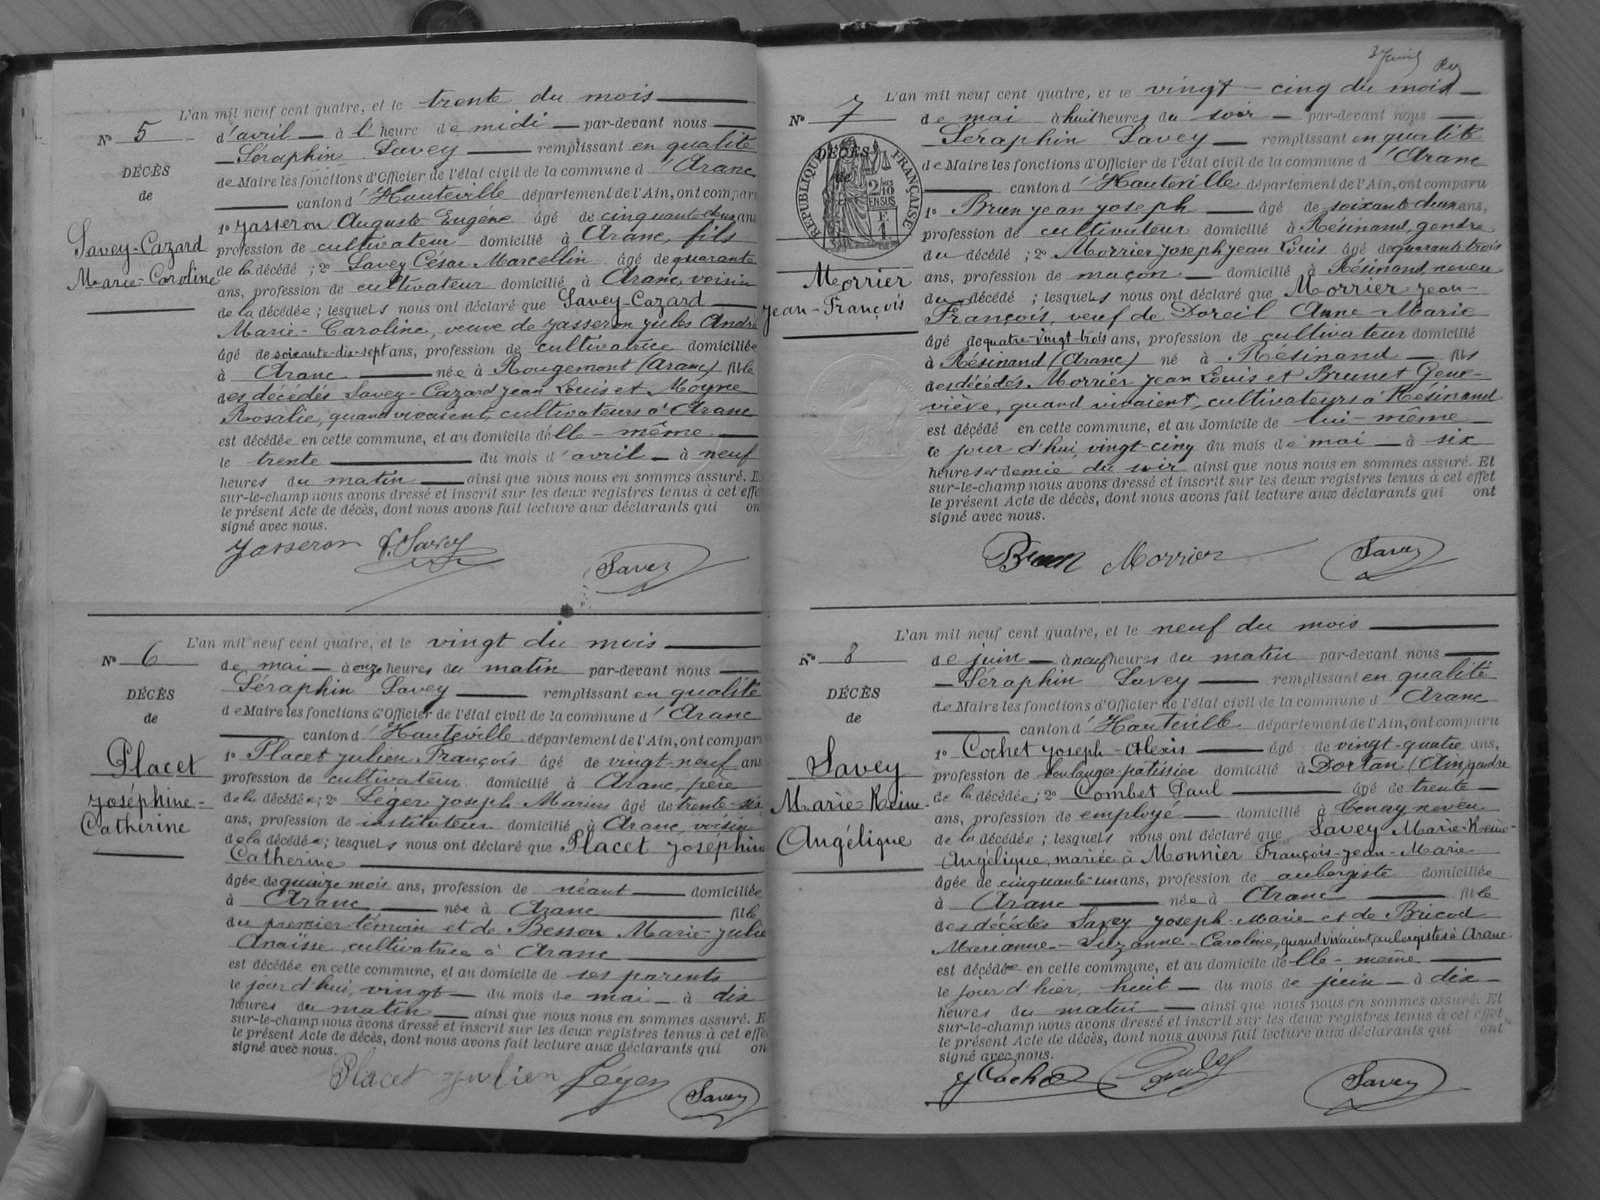 L'an mil neuf cent quatre, et le trente du mois
N° 5
d'avril à l heure de midi par-devant nous
Séraphin Savey remplissant en qualité
DÉCÈS
de Maire les fonctions d'Officier de l'état civil de la commune d'Aranc
de
canton d'Hauteville département de l'Ain, ont comparu
1° Jasseron Auguste Eugène âgé de cinquante deux ans
Savey-Cazard
Marie-Caroline
profession de cultivateur domicilié à Aranc, fils
de la décédé ; 2° Savey César Marcellin âgé de quarante
ans, profession de cultivateur domicilié à Aranc, voisin
de la décédée ; lesquels nous ont déclaré que Savey-Cazard
Marie-Caroline, veuve de Jasseron Jules André
âgé de soixante-dix-sept ans, profession de cultivatrice domiciliée
à Aranc née à Rougemont (Aranc) fille
des décédés Savey-Cazard Jean Louis et Moyne
Rosalie, quand vivaient, cultivateurs à Aranc
est décédée en cette commune, et au domicile d'elle-même
le trente du mois d'avril à neuf
heures du matin ainsi que nous nous en sommes assuré. E
sur-le-champ nous avons dressé et inscrit sur les deux registres tenus à cet effe
le présent Acte de décès, dont nous avons fait lecture aux déclarants qui on
signé avec nous.
Jasseron Savey Savey
L'an mil neuf cent quatre, et le vingt du mois
N° 6
de mai à onze heures du matin par-devant nous
Séraphin Savey remplissant en qualité
DÉCÈS
de Maire les fonctions d'Officier de l'état civil de la commune d'Aranc
de
canton d'Hauteville département de l'Ain, ont comparu
Placet
Joséphine-
Catherine
1° Placet Julien François âgé de vingt-neuf ans
profession de cultivateur domicilié à Aranc, père
de la décédée ; 2° Léger Joseph Marius âgé de trente-six
ans, profession de instituteur domicilié à Aranc, voisin
de la décédée ; lesquels nous ont déclaré que Placet Joséphine
Catherine
âgée de quinze mois ans, profession de néant domiciliée
à Aranc née à Aranc fille
du premier témoin et de Besson Marie-Julie
Anaïse, cultivatrice à Aranc
est décédée en cette commune, et au domicile de ses parents
le jour d'hui, vingt du mois de mai à dix
heures du matin ainsi que nous nous en sommes assuré. E
sur-le-champ nous avons dressé et inscrit sur les deux registres tenus à cet effe
le présent Acte de décès, dont nous avons fait lecture aux déclarants qui on
signé avec nous.
Placet Julien Léger Savey
L'an mil neuf cent quatre, et le vingt-cinq du mois
N° 7
de mai à huit heures du soir par-devant nous
Séraphin Savey remplissant en qualité
DÉCÈS
de
RÉPUBLIQUE FRANÇAISE
2/10 EN SUS
F. 1
de Maire les fonctions d'Officier de l'état civil de la commune d'Aranc
canton d'Hauteville département de l'Ain, ont comparu
1° Brun Jean Joseph âgé de soixante deux ans,
profession de cultivateur domicilié à Résinand, gendre
du décédé ; 2° Morrier Joseph Jean Louis âgé de quarante trois
Morrier
Jean-François
ans, profession de maçon domicilié à Résinand, neveu
du décédé ; lesquels nous ont déclaré que Morrier Jean-
François, veuf de Doreil Anne-Marie
âgé de quatre-vingt-trois ans, profession de cultivateur domicilié
à Résinand (Aranc) né à Résinand fils
des décédés Morrier Jean Louis et Brunet Gene-
viève, quand vivaient, cultivateurs à Résinand
est décédé en cette commune, et au domicile de lui-même
ce jour d'hui, vingt-cinq du mois de mai à six
heures et demie du soir ainsi que nous nous en sommes assuré. Et
sur-le-champ nous avons dressé et inscrit sur les deux registres tenus à cet effet
le présent Acte de décès, dont nous avons fait lecture aux déclarants qui ont
signé avec nous.
Brun Morrier Savey
L'an mil neuf cent quatre, et le neuf du mois
N° 8
de juin à neuf heures du matin par-devant nous
Séraphin Savey remplissant en qualité
DÉCÈS
de Maire les fonctions d'Officier de l'état civil de la commune d'Aranc
de
canton d'Hauteville département de l'Ain, ont comparu
Savey
Marie-Reine-
Angélique
1° Cochet Joseph-Alexis âgé de vingt-quatre ans,
profession de boulanger-patissier domicilié à Dortan (Ain) gendre
de la décédée ; 2° Combet Paul âgé de trente
ans, profession de employé domicilié à Tenay neveu
de la décédée ; lesquels nous ont déclaré que Savey Marie-Reine-
Angélique, mariée à Monnier François-Jean-Marie
âgée de cinquante-un ans, profession de aubergiste domiciliée
à Aranc née à Aranc fille
des décédés Savey Joseph-Marie et de Bricod
Marianne-Suzanne-Caroline, quand vivaient, aubergistes à Aranc
est décédée en cette commune, et au domicile d'elle-même
le jour d'hier, huit du mois de juin à dix
heures du matin ainsi que nous nous en sommes assuré. Et
sur-le-champ nous avons dressé et inscrit sur les deux registres tenus à cet effet
le présent Acte de décès, dont nous avons fait lecture aux déclarants qui ont
signé avec nous.
J Cochet Savey